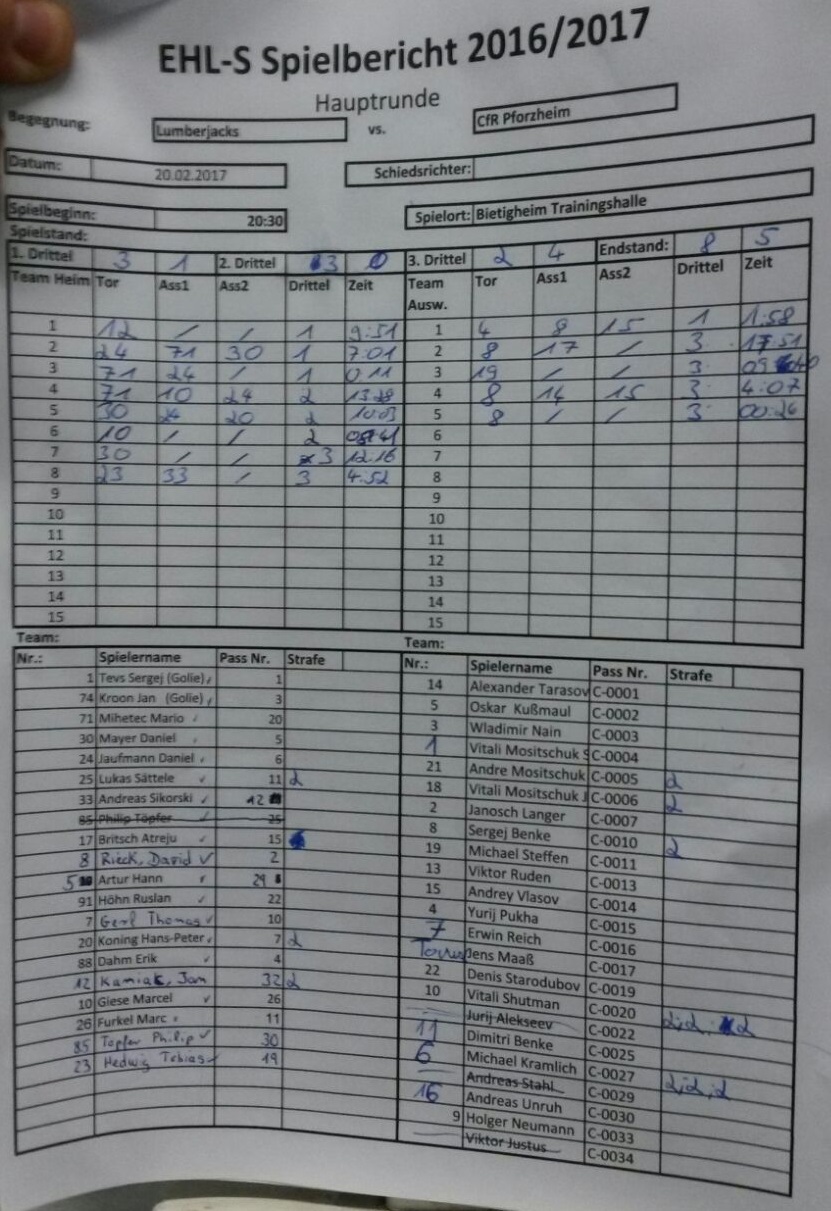 EHL-S Spielbericht 2016/2017
Hauptrunde
Begegnung: Lumberjacks vs. CfR Pforzheim
Datum: 20.02.2017 Schiedsrichter:
Spielbeginn: 20:30 Spielort: Bietigheim Trainingshalle
Spielstand:
1. Drittel 3 1 2. Drittel 3 0 3. Drittel 2 4 Endstand: 8 5
Team Heim Tor Ass1 Ass2 Drittel Zeit Team Ausw. Tor Ass1 Ass2 Drittel Zeit
1 12 / / 1 9:51 1 4 8 15 1 1:58
2 24 71 30 1 7:01 2 8 17 / 3 17:51
3 71 24 / 1 0:11 3 19 / / 3
4 71 10 24 2 13:28 4 8 14 15 3 4:07
5 30 20 2 10:03 5 8 / / 3 00:26
6 10 / / 2 6
7 30 / / 3 12:16 7
8 23 33 / 3 4:52 8
9 9
10 10
11 11
12 12
13 13
14 14
15 15
Team: Team:
Nr.: Spielername Pass Nr. Strafe Nr.: Spielername Pass Nr. Strafe
1 Tevs Sergej (Golie) 1
74 Kroon Jan (Golie) 3
71 Mihetec Mario 20
30 Mayer Daniel 5
24 Jaufmann Daniel 6
25 Lukas Sättele 11 2
33 Andreas Sikorski 12
85 Philip Töpfer 25
17 Britsch Atreju 15
8 Rieck, David 2
5 Artur Hann 29
91 Höhn Ruslan 22
7 Gerl Thomas 10
20 Koning Hans-Peter 7 2
88 Dahm Erik 4
12 Kaniak, Jan 32 2
10 Giese Marcel 26
26 Furkel Marc 11
85 Topfer Philip 30
23 Hedwig Tobias 19
14 Alexander Tarasov C-0001
5 Oskar Kußmaul C-0002
3 Wladimir Nain C-0003
1 Vitali Mositschuk S C-0004
21 Andre Mositschuk C-0005 2
18 Vitali Mositschuk J C-0006 2
2 Janosch Langer C-0007
8 Sergej Benke C-0010 2
19 Michael Steffen C-0011
13 Viktor Ruden C-0013
15 Andrey Vlasov C-0014
4 Yurij Pukha C-0015
7 Erwin Reich C-0016
Jens Maaß C-0017
22 Denis Starodubov C-0019
10 Vitali Shutman C-0020
Jurij Alekseev C-0022 2, 2, 2
11 Dimitri Benke C-0025
6 Michael Kramlich C-0027
Andreas Stahl C-0029 2, 2, 2
16 Andreas Unruh C-0030
9 Holger Neumann C-0033
Viktor Justus C-0034